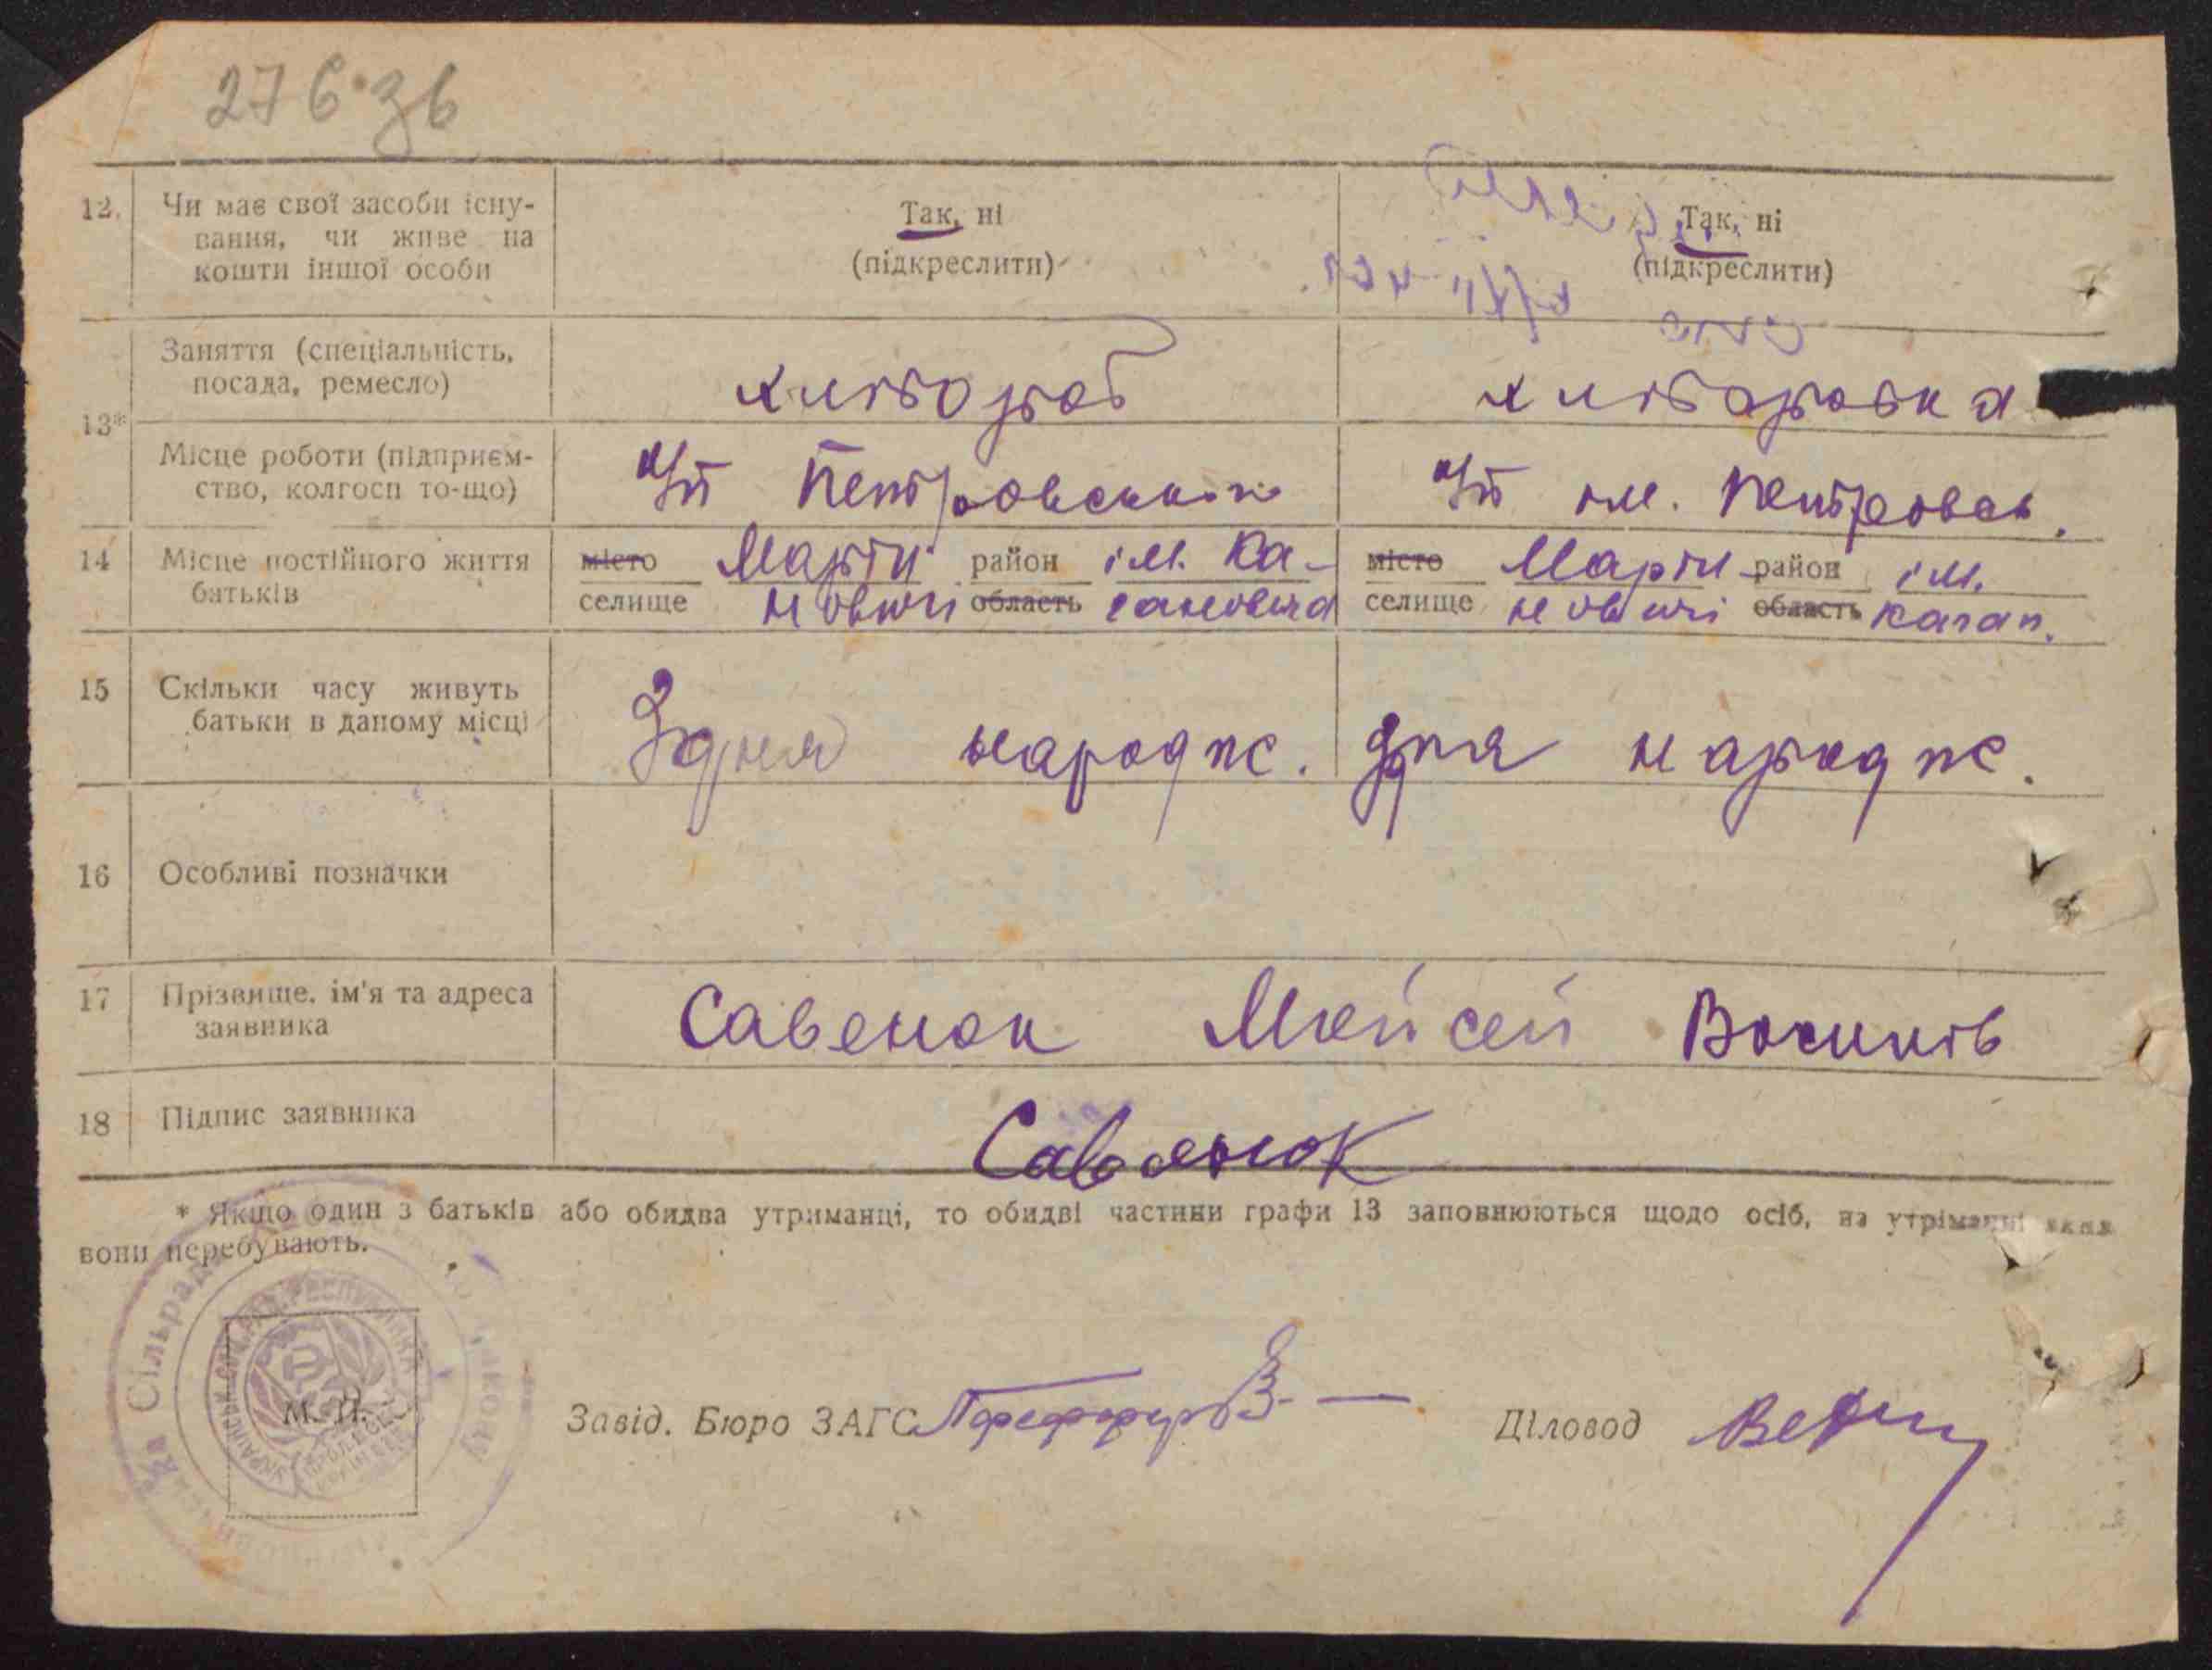 276 зв
12. Чи має свої засоби існу-
вання, чи живе на
кошти іншої особи
Так, ні
(підкреслити)
Так, ні
(підкреслити)
13*
Заняття (спеціальність,
посада, ремесло)
хлібороб
хліборобка
Місце роботи (підприєм-
ство, колгосп то-що)
Петровського
ім. Петровськ.
14 Місце постійного життя
батьків
місто
селище
Марти
новичі
район
область
ім. Ка-
гановича
місто
селище
Марти
новичі
район
область
ім.
Каган.
15 Скільки часу живуть
батьки в даному місці
З дня народж.
З дня народж.
16 Особливі позначки
17 Прізвище, ім'я та адреса
заявника
Савенок Мойсей Василів
18 Підпис заявника
Савенок
* Якщо один з батьків або обидва утриманці, то обидві частини графи 13 заповнюються щодо осіб, на утріманні яких
вони перебувають.
М. П.
Завід. Бюро ЗАГС
Діловод